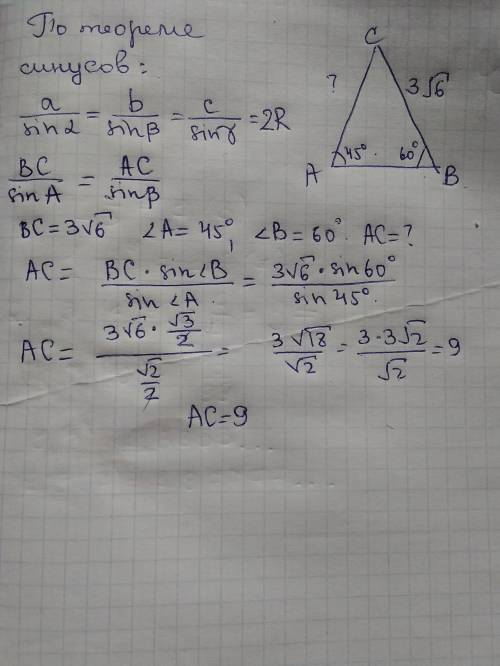 По теореме
синусов:
a/sinα = b/sinβ = c/sinγ = 2R
BC/sinA = AC/sinβ
BC=3√6 ∠A= 45°, ∠B= 60° AC=?
AC= BC·sin∠B/sin∠A = 3√6·sin60°/sin45°
AC= (3√6·√3/2)/(√2/2) = 3√18/√2 = 3·3√2/√2 = 9
AC=9
C
? 3√6
A 45° 60° B